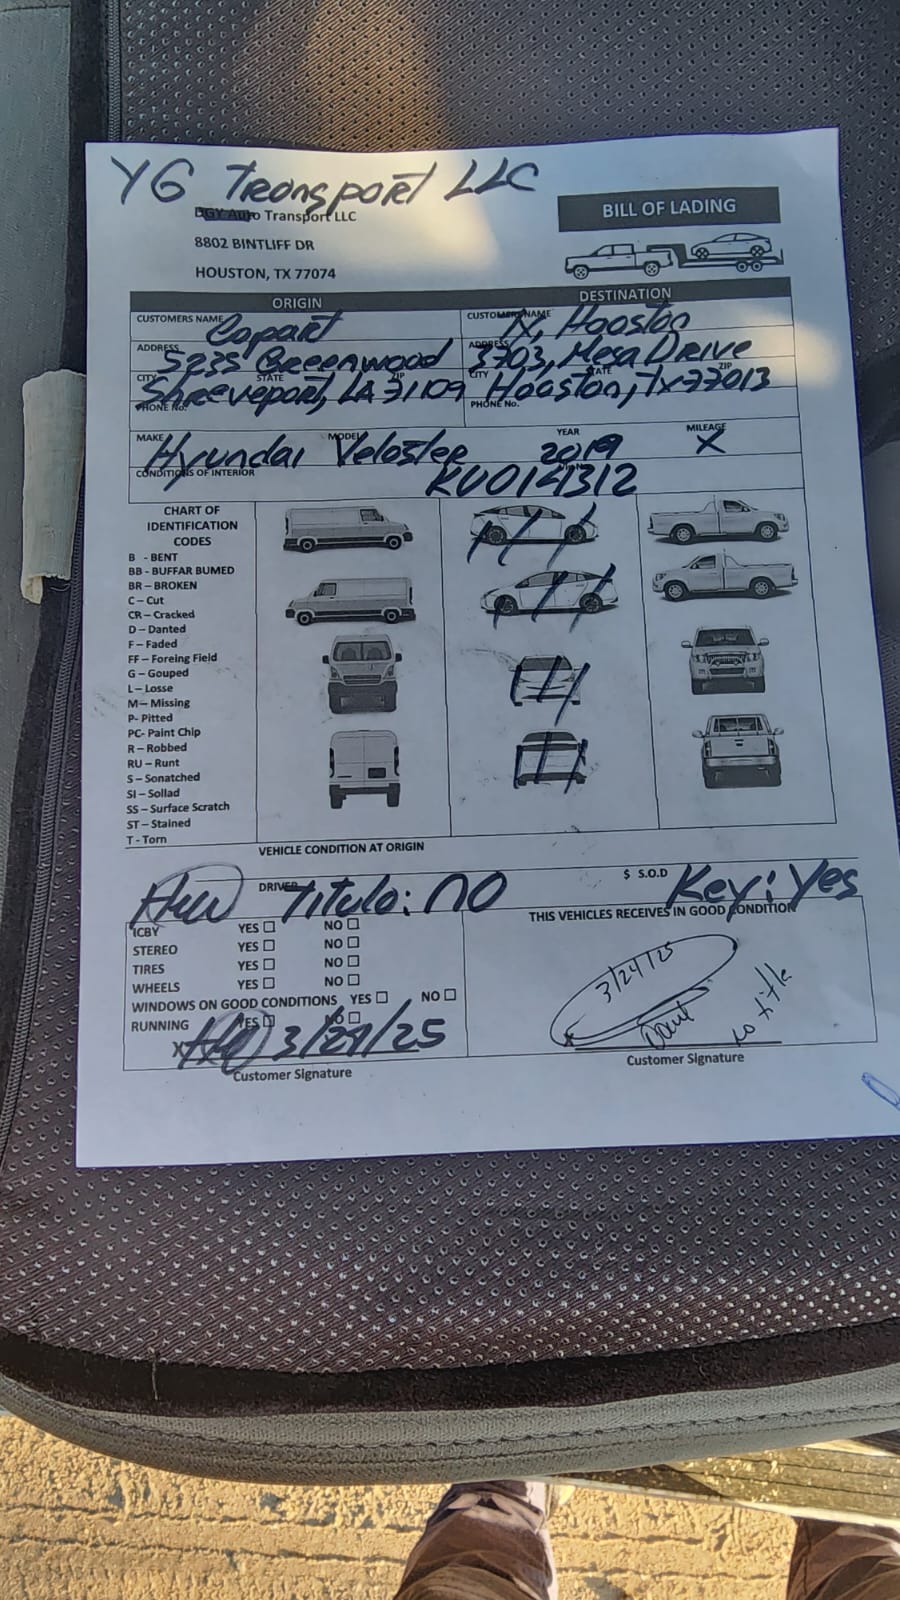 YG Transport LLC
DGY Auto Transport LLC
BILL OF LADING
8802 BINTLIFF DR
HOUSTON, TX 77074
ORIGIN DESTINATION
CUSTOMERS NAME Copart CUSTOMERS NAME N, Houston
ADDRESS 5235 Greenwood ADDRESS 3703, Mesa Drive
CITY STATE ZIP Shreveport, LA 71109 CITY STATE ZIP Houston, Tx 77013
PHONE No. PHONE No.
MAKE Hyundai MODEL Veloster YEAR 2019 MILEAGE X
CONDITIONS OF INTERIOR KU014312
CHART OF
IDENTIFICATION
CODES
B - BENT
BB - BUFFAR BUMED
BR – BROKEN
C – Cut
CR – Cracked
D – Danted
F – Faded
FF – Foreing Field
G – Gouped
L – Losse
M – Missing
P- Pitted
PC- Paint Chip
R – Robbed
RU – Runt
S – Sonatched
SI – Sollad
SS – Surface Scratch
ST – Stained
T - Torn
VEHICLE CONDITION AT ORIGIN
DRIVER Titulo: no $ S.O.D Key: Yes
THIS VEHICLES RECEIVES IN GOOD CONDITION
ICBY YES NO
STEREO YES NO
TIRES YES NO
WHEELS YES NO
WINDOWS ON GOOD CONDITIONS YES NO
RUNNING YES NO
X 3/24/25
Customer Signature
3/24/25
no title
Customer Signature